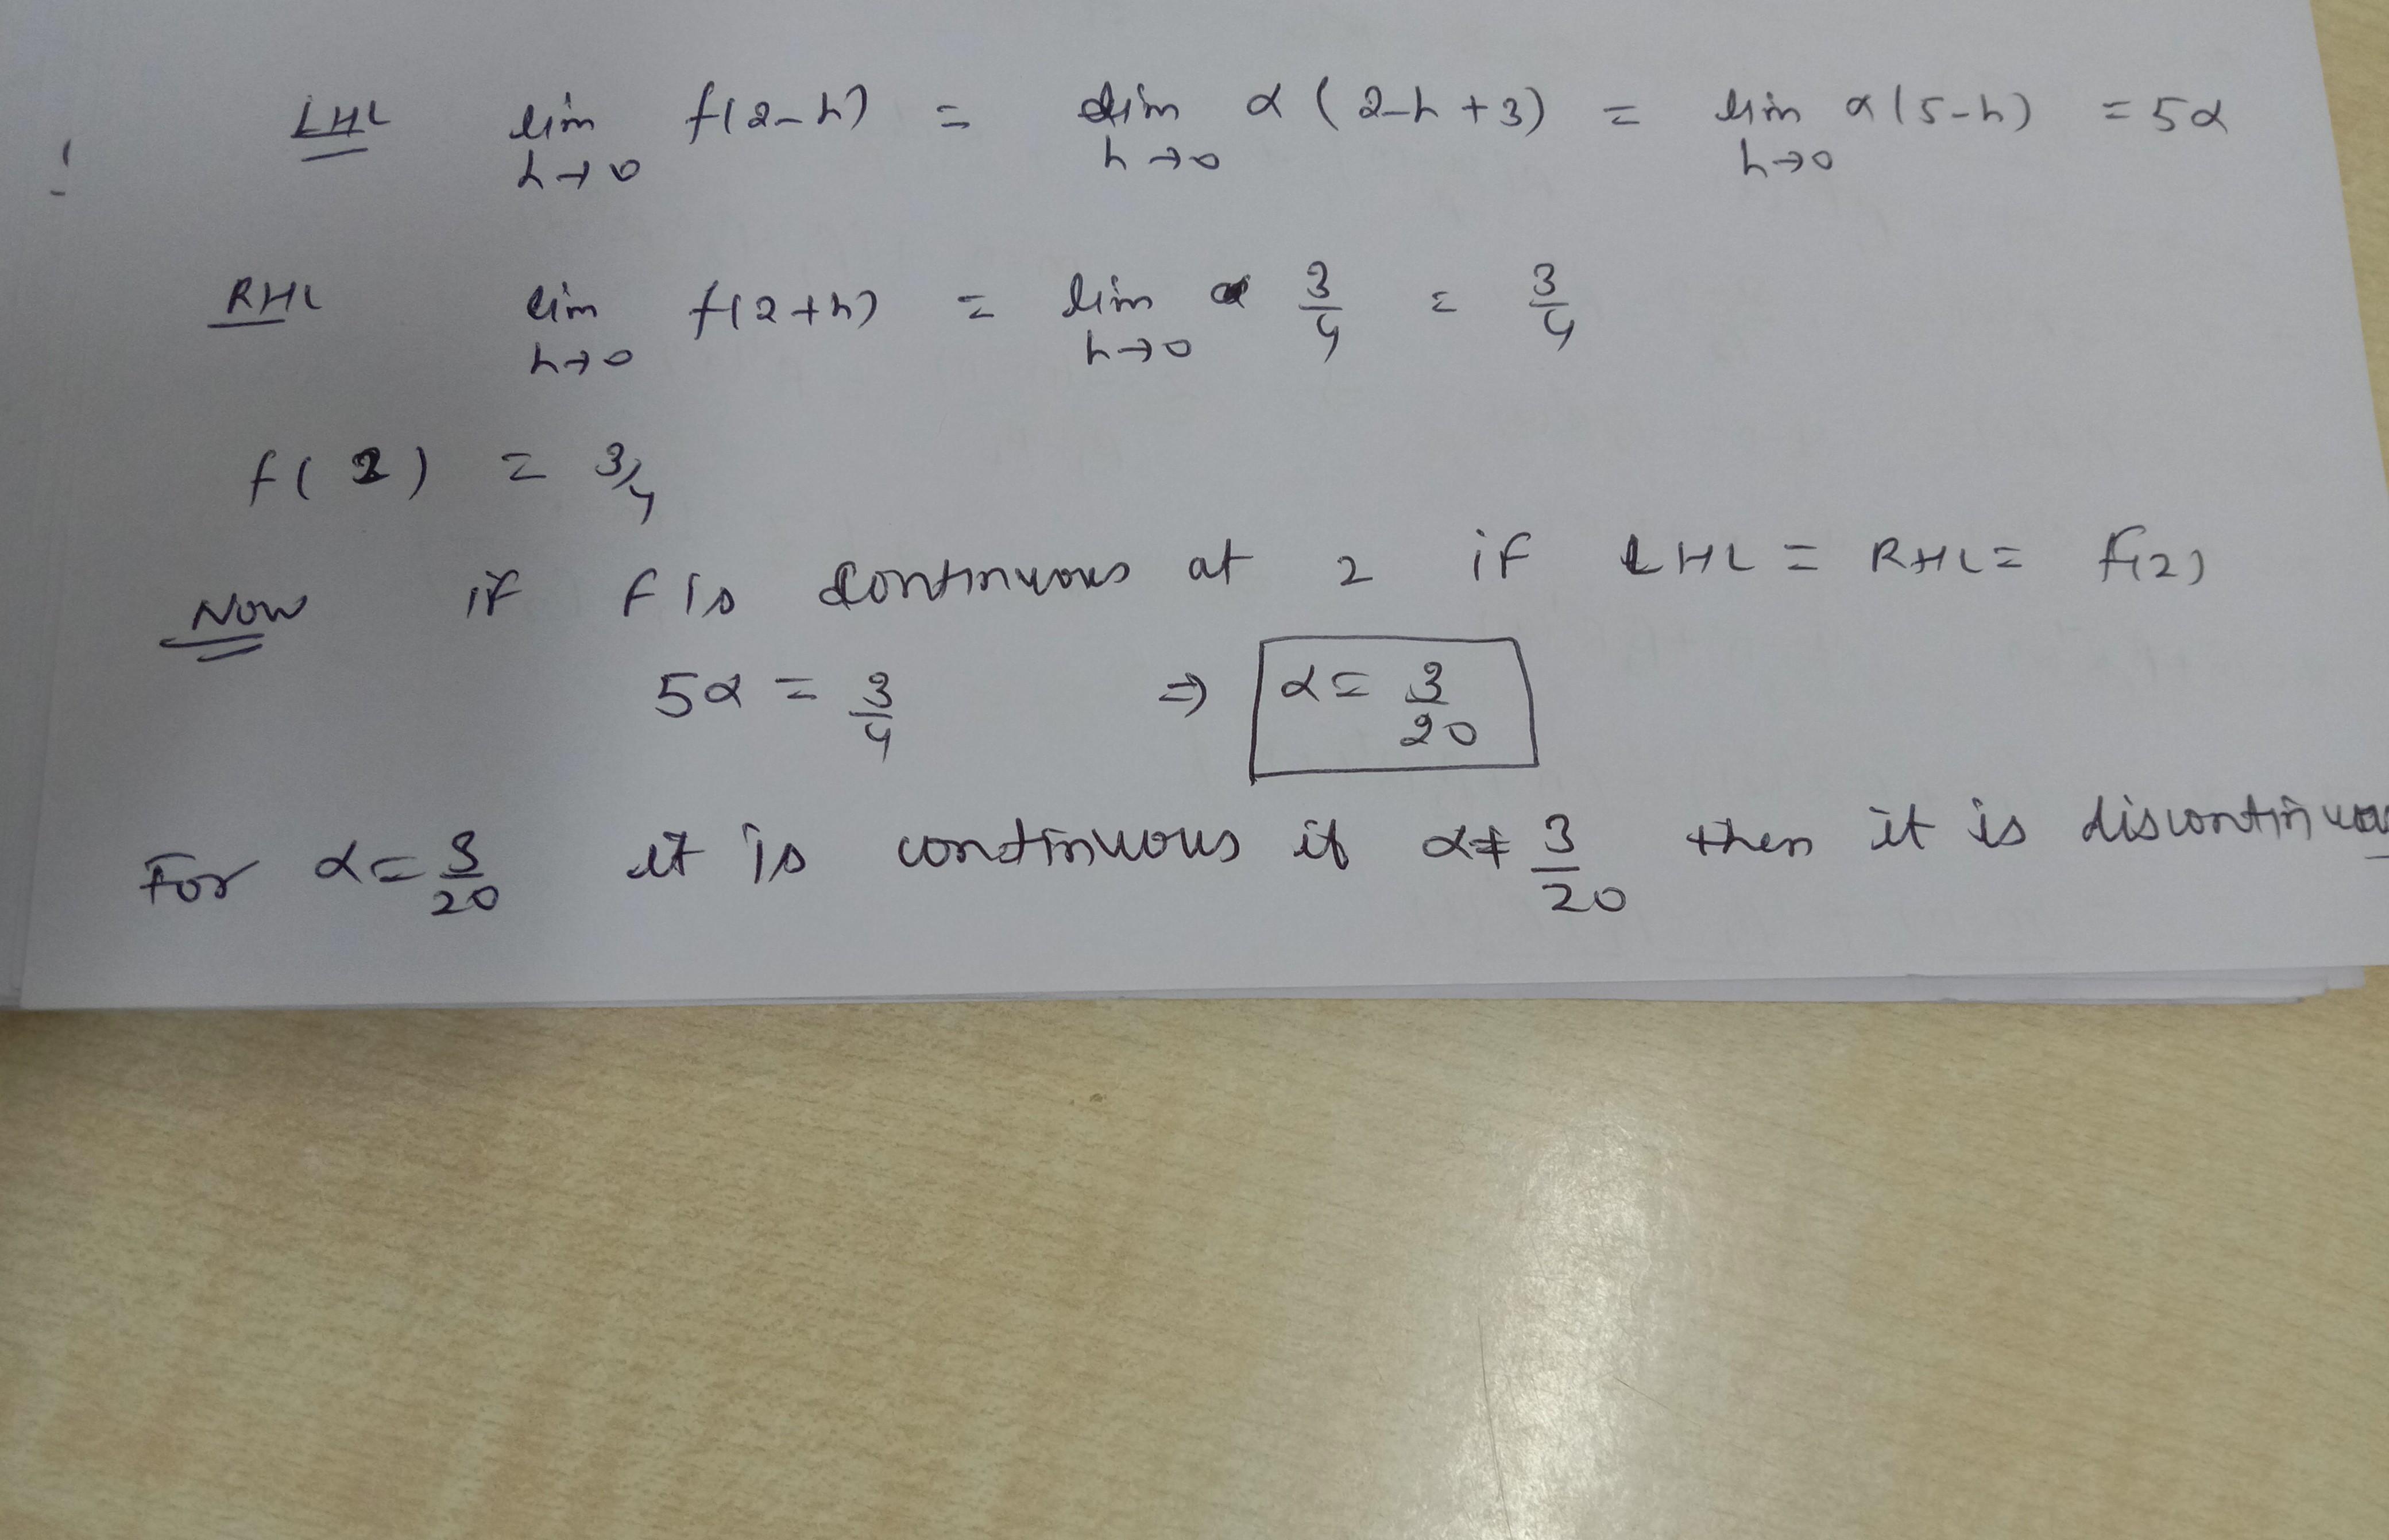 LHL lim h→0 f(2-h) = lim h→0 α(2-h+3) = lim h→0 α(5-h) = 5α
RHL lim h→0 f(2+h) = lim h→0 3/4 = 3/4
f(2) = 3/4
Now if f is continuous at 2 if LHL = RHL = f(2)
5α = 3/4 ⇒ α = 3/20
For α = 3/20 it is continuous if α ≠ 3/20 then it is